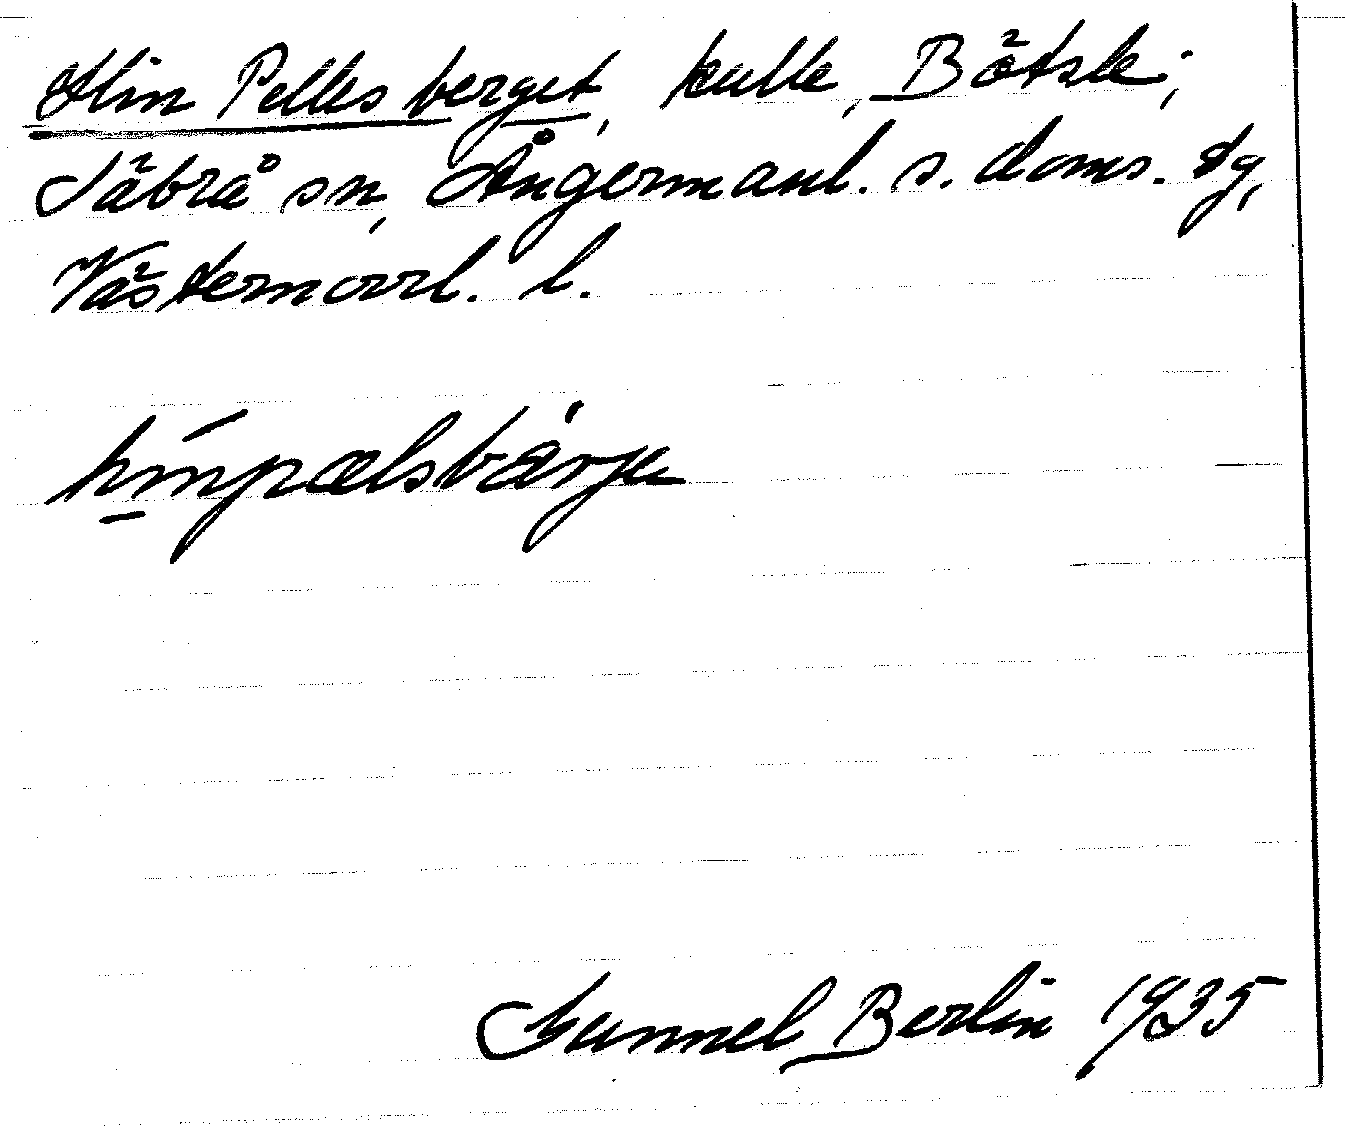 Hin Pelles berget, kulle, Bätsle;
Säbrå sn, Ångermanl. s. doms. tg,
Västernorrl. l.
hinpælsbärje
Gunnel Berlin 1935